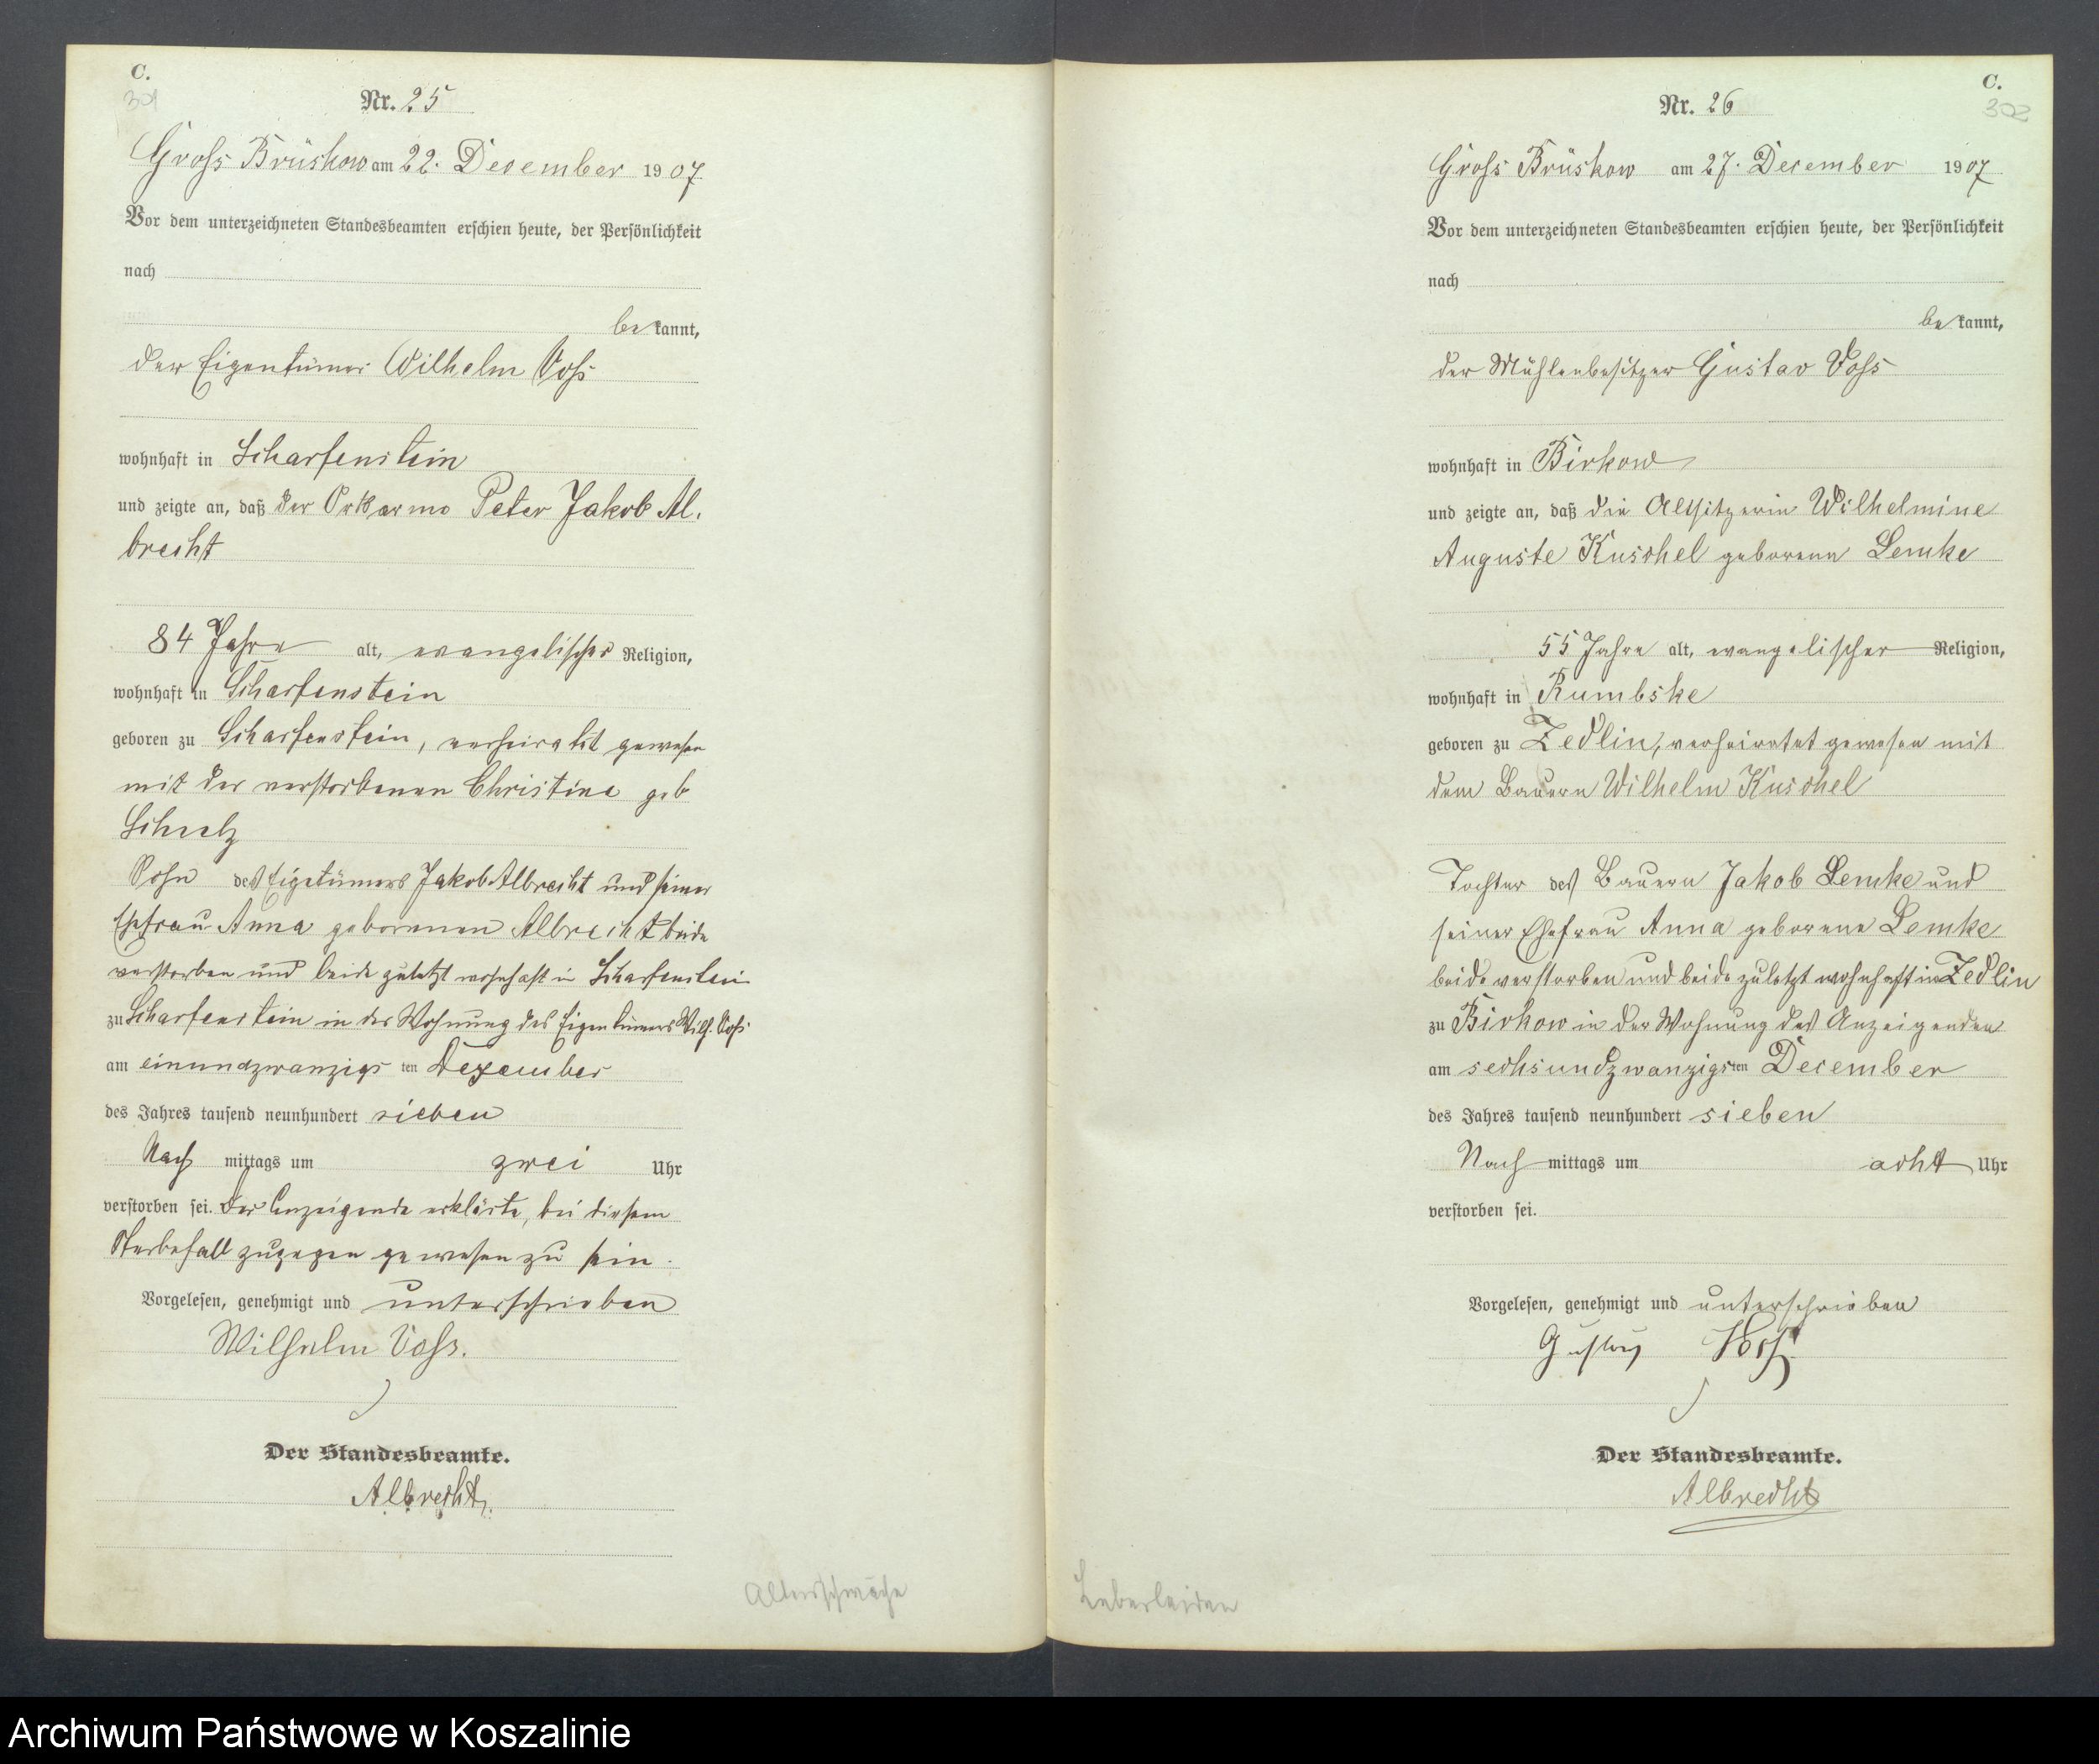 C.
301
Nr. 25
Gross Brüskow am 22. December 1907
Vor dem unterzeichneten Standesbeamten erschien heute, der Persönlichkeit
nach
be kannt,
der Eigentümer Wilhelm Voss
wohnhaft in Scharfenstein
und zeigte an, daß der Ortsarme Peter Jakob Al.
brecht
84 Jahre alt, evangelischer Religion,
wohnhaft in Scharfenstein
geboren zu Scharfenstein, verheiratet gewesen
mit der verstorbenen Christine geb
Schulz
Sohn des Eigetümers Jakob Albrecht und seiner
Ehefrau Anna geborenen Albrecht beide
verstorben und beide zuletzt wohnhaft in Scharfenstein
zu Scharfenstein in der Wohnung des Eigentümers Wilh. Voss
am einundzwanzigs ten Dezember
des Jahres tausend neunhundert sieben
Nach mittags um zwei Uhr
verstorben sei. Der Anzeigende erklärte, bei diesem
Sterbefall zugegen gewesen zu sein.
Vorgelesen, genehmigt und unterschrieben
Wilhelm Voss.
Der Standesbeamte.
Albrecht
Altersschwäche
C.
302
Nr. 26
Gross Brüskow am 27. December 1907
Vor dem unterzeichneten Standesbeamten erschien heute, der Persönlichkeit
nach
be kannt,
der Mühlenbesitzer Gustav Voss
wohnhaft in Birkow
und zeigte an, daß die Altsitzerin Wilhelmine
Auguste Kuschel geborene Lemke
55 Jahre alt, evangelischer Religion,
wohnhaft in Rumbske
geboren zu Zedlin, verheiratet gewesen mit
dem Bauern Wilhelm Kuschel
Tochter des Bauern Jakob Lemke und
seiner Ehefrau Anna geborene Lemke
beide verstorben und beide zuletzt wohnhaft in Zedlin
zu Birkow in der Wohnung des Anzeigenden
am sechsundzwanzigsten December
des Jahres tausend neunhundert sieben
Nach mittags um acht Uhr
verstorben sei.
Vorgelesen, genehmigt und unterschrieben
Gustav Voss
Der Standesbeamte.
Albrecht
Leberleiden
Archiwum Państwowe w Koszalinie